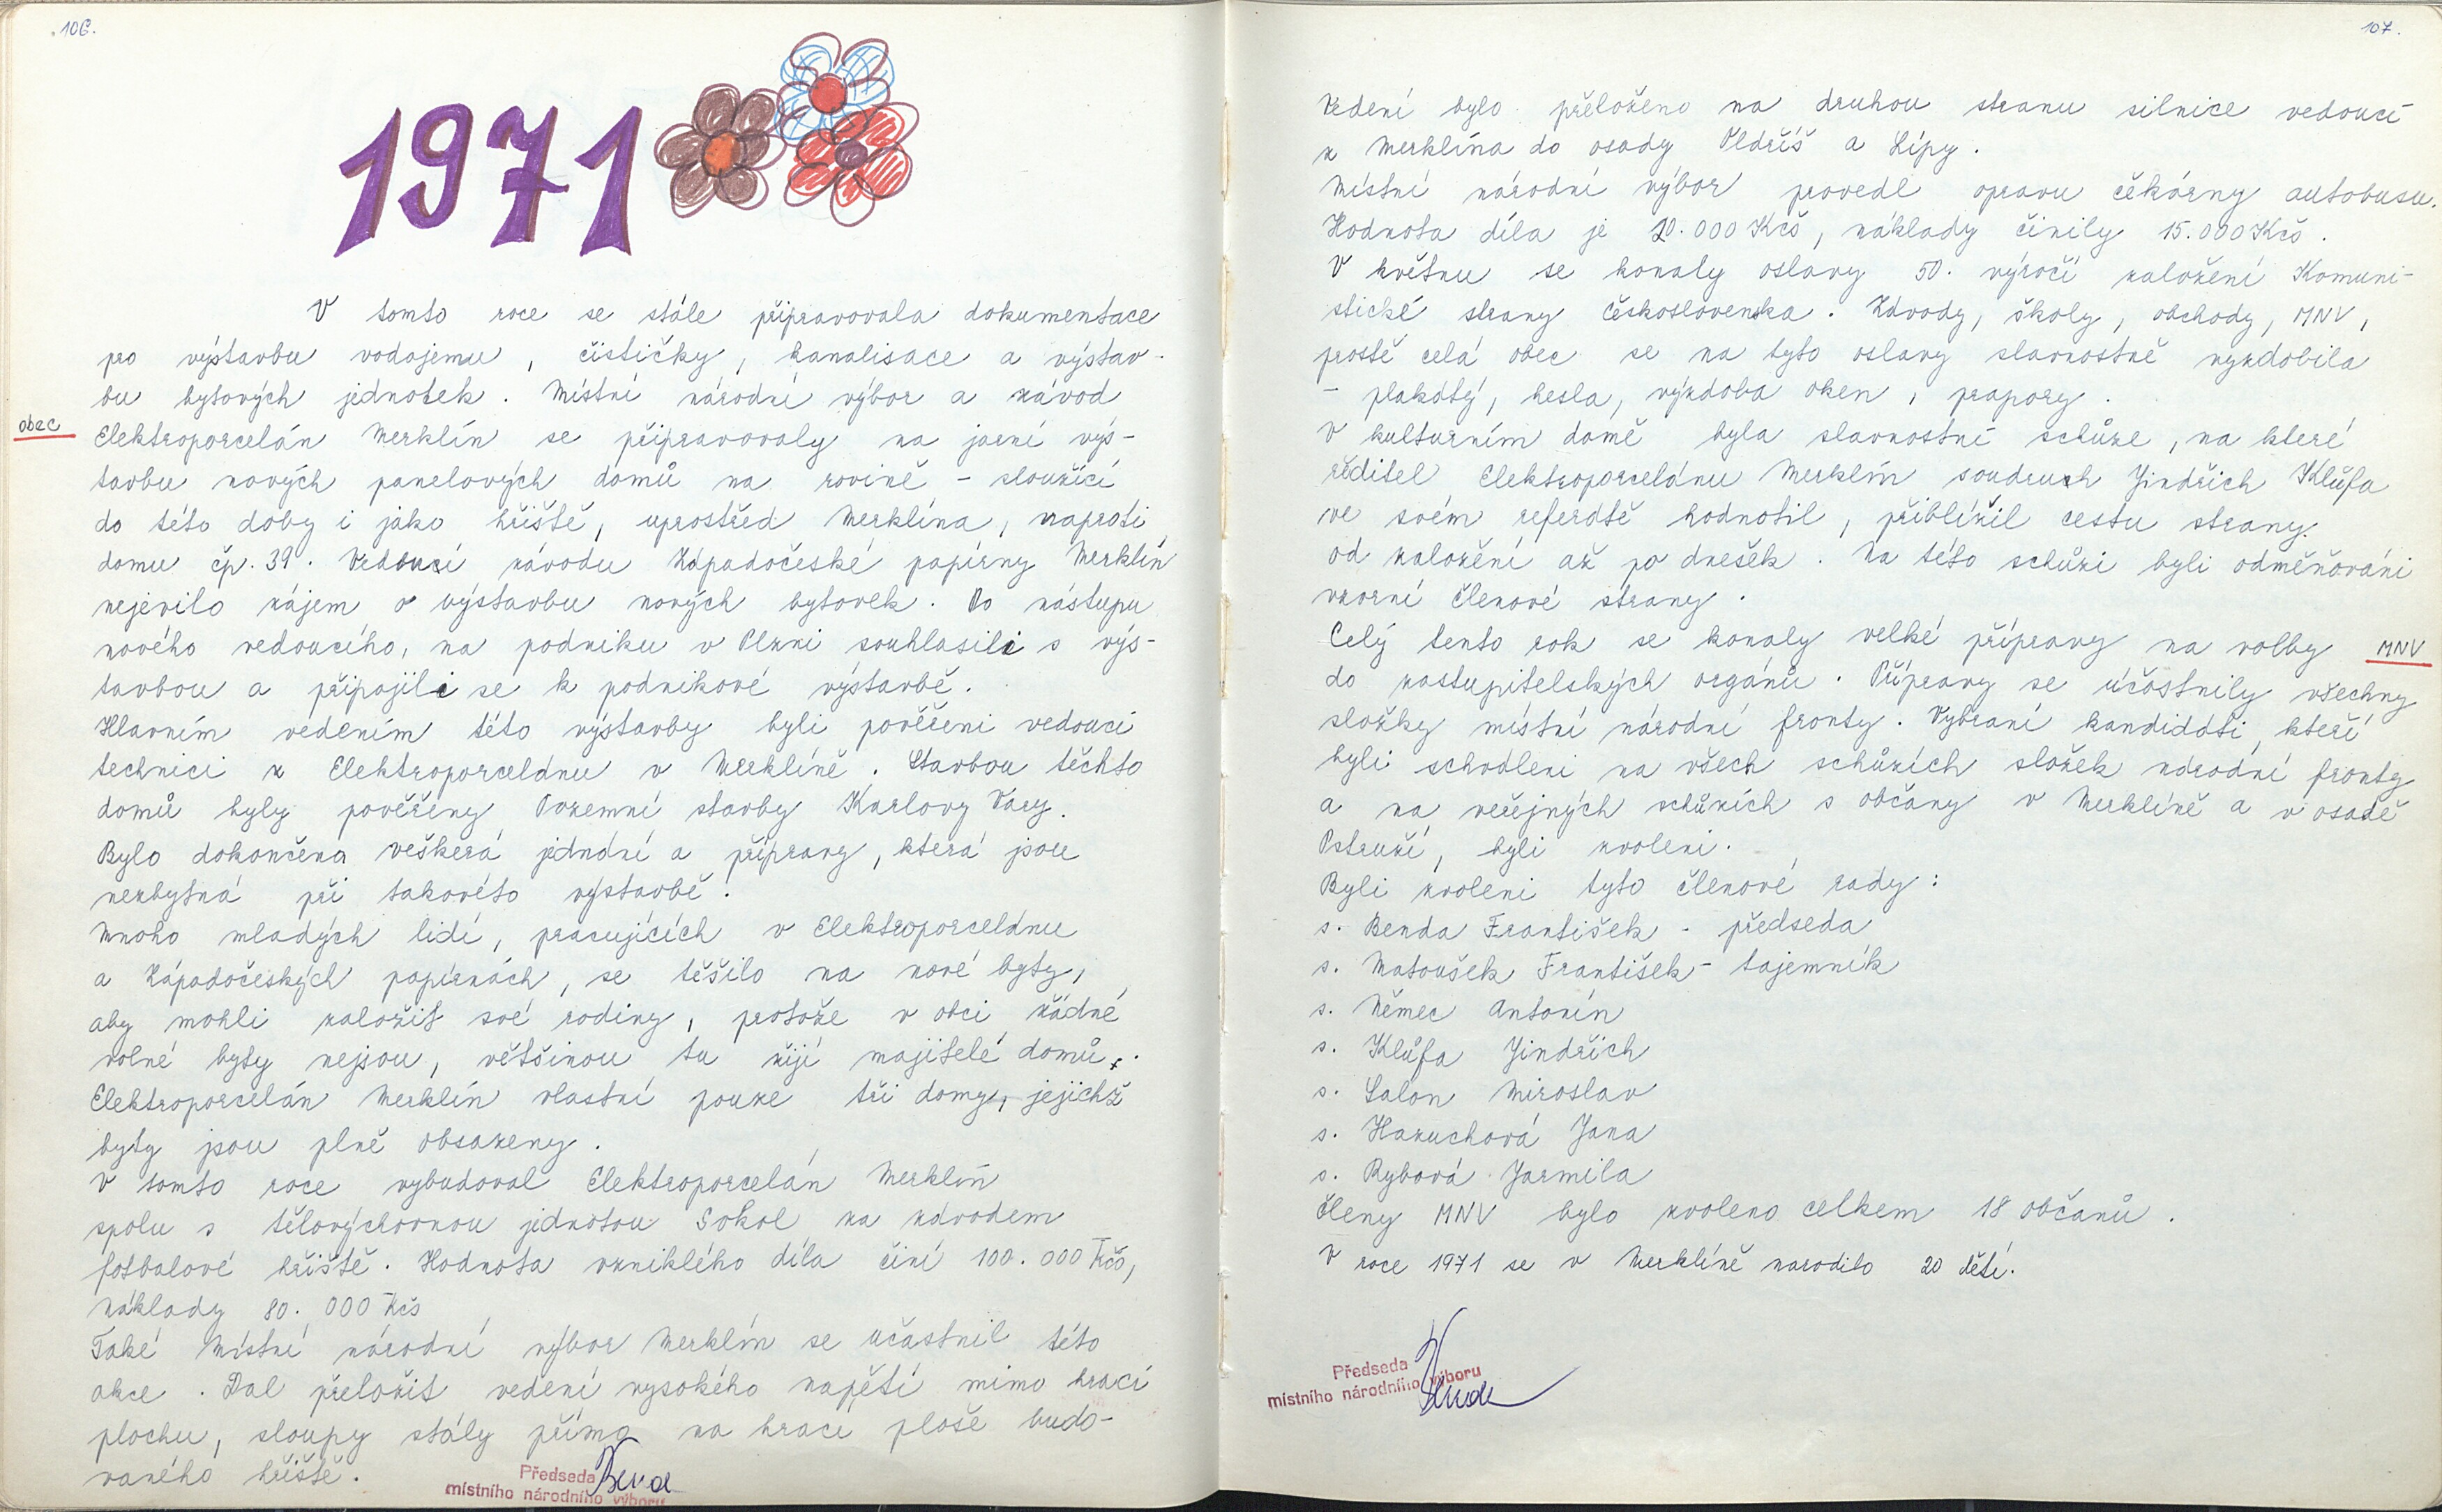 106.
1971
V tomto roce se stále připravovala dokumentace
pro výstavbu vodojemu, čističky, kanalisace a výstav-
bu bytových jednotek. Místní národní výbor a závod
obec
Elektroporcelán Merklín se připravovaly na jarní výs-
tavbu nových panelových domů na rovině - sloužící
do této doby i jako hřiště, uprostřed Merklína, naproti
domu čp. 39. Vedoucí závodu Západočeské papírny Merklín
nejevilo zájem o výstavbu nových bytovek. Po nástupu
nového vedoucího, na podniku v Plzni souhlasili s výs-
tavbou a připojili se k podnikové výstavbě.
Hlavním vedením této výstavby byli pověřeni vedoucí
technici z Elektroporcelánu v Merklíně. Stavbou těchto
domů byly pověřeny Pozemní stavby Karlovy Vary.
Bylo dokončena veškerá jednání a přípravy, která jsou
nezbytná při takovéto výstavbě.
Mnoho mladých lidí, pracujících v Elektroporcelánu
a Západočeských papírnách, se těšilo na nové byty,
aby mohli založit své rodiny, protože v obci žádné
volné byty nejsou, většinou tu žijí majitelé domů.
Elektroporcelán Merklín vlastní pouze tři domy, jejichž
byty jsou plně obsazeny.
V tomto roce vybudoval Elektroporcelán Merklín
spolu s tělovýchovnou jednotou Sokol za závodem
fotbalové hřiště. Hodnota vzniklého díla činí 100.000 Kčs,
náklady 80.000 Kčs
Také Místní národní výbor Merklín se učastnil této
akce. Dal přeložit vedení vysokého napětí mimo hrací
plochu, sloupy stály přímo na hrací ploše budo-
vaného hřiště.
Předseda
místního národního výboru
107.
Vedení bylo přeloženo na druhou stranu silnice vedoucí
z Merklína do osady Oldříš a Lípy.
Místní národní výbor provedl opravu čekárny autobusu.
Hodnota díla je 20.000 Kčs, náklady činily 15.000 Kčs.
V květnu se konaly oslavy 50. výročí založení Komuni-
stické strany Československa. Závody, školy, obchody, MNV,
prostě celá obec se na tyto oslavy slavnostně vyzdobila
- plakáty, hesla, výzdoba oken, prapory.
V kulturním domě byla slavnostní schůze, na které
ředitel Elektroporcelánu Merklín soudruh Jindřich Klůfa
ve svém referátě hodnotil, přiblížil cestu strany
od založení až po dnešek. Na této schůzi byli odměňováni
vzorní členové strany.
Celý tento rok se konaly velké přípravy na volby
MNV
do zastupitelských orgánů. Přípravy se účastnily všechny
složky místní národní fronty. Vybraní kandidáti, kteří
byli schváleni na všech schůzích složek národní fronty
a na veřejných schůzích s občany v Merklíně a v osadě
Pstruží, byli zvoleni.
Byli zvoleni tyto členové rady:
s. Benda František - předseda
s. Matoušek František - tajemník
s. Němec Antonín
s. Klůfa Jindřich
s. Salon Miroslav
s. Hazuchová Jana
s. Rybová Jarmila
Členy MNV bylo zvoleno celkem 18 občanů.
V roce 1971 se v Merklíně narodilo 20 dětí.
Předseda
místního národního výboru